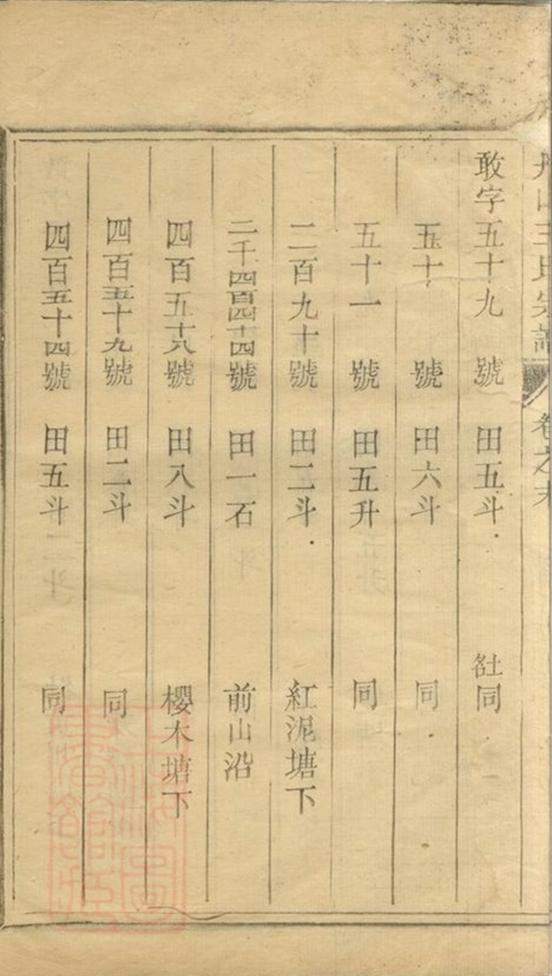 王氏宗譜 卷之末
敢字五十九號 田五斗 土名同
五十號 田六斗 同
五十一號 田五升 同
二百九十號 田二斗 紅泥塘下
二千四百四十四號 田一石 前山沿
四百五十八號 田八斗 櫻木塘下
四百五十九號 田二斗 同
四百五十四號 田五斗 同